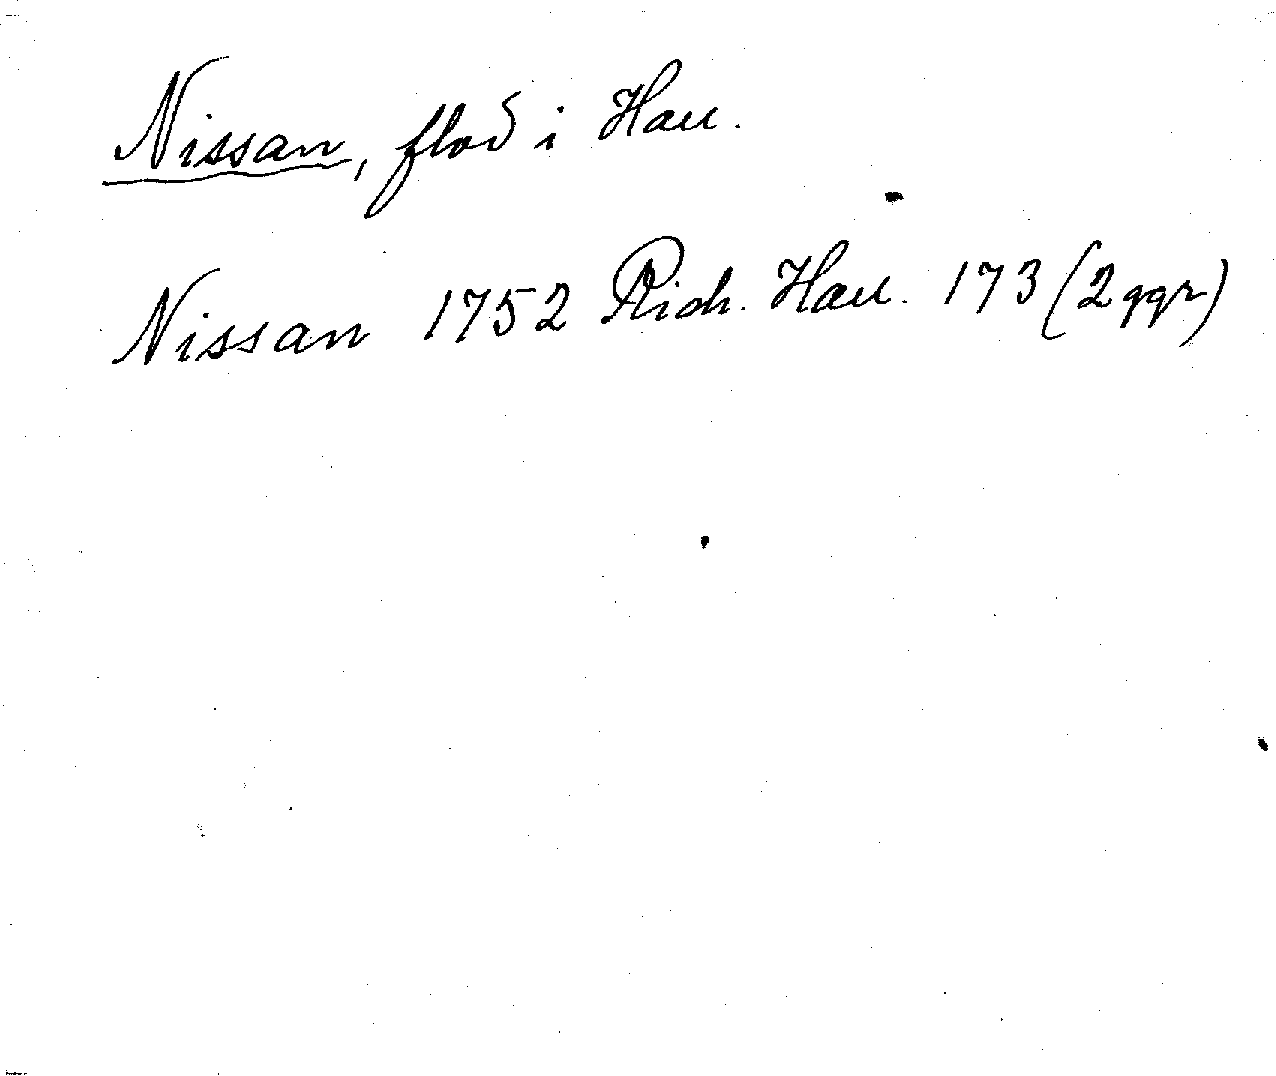 Nissan, flod i Hall.
Nissan 1752 Rich. Hall. 173 (2 ggr)